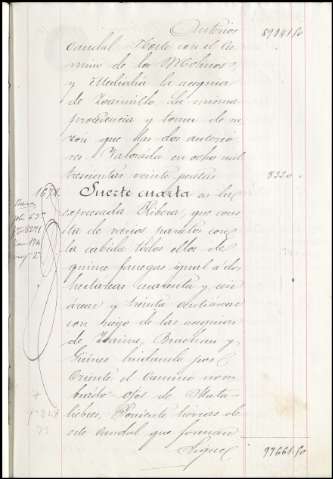 Anterior 89341,50
caudal Norte con el ca-
mino de los Molinos
y Mediodia la acequia
de Jaramillo. La misma
procedencia y toma de ra-
zon que las dos anterio-
res. Valorada en ocho mil
trescientas veinte pesetas 8320
Suerte cuarta en la
expresada Ribera, que cons-
ta de varios pared con
la cabida todos ellos de
quince fanegas igual á dos
hectareas cuarenta y
áreas y treinta centiareas
con riego de las acequias
de
lindando por
Oriente el Camino nom-
brado Ojos de
Poniente tierras de
este caudal que forman
Sigue 97661,50